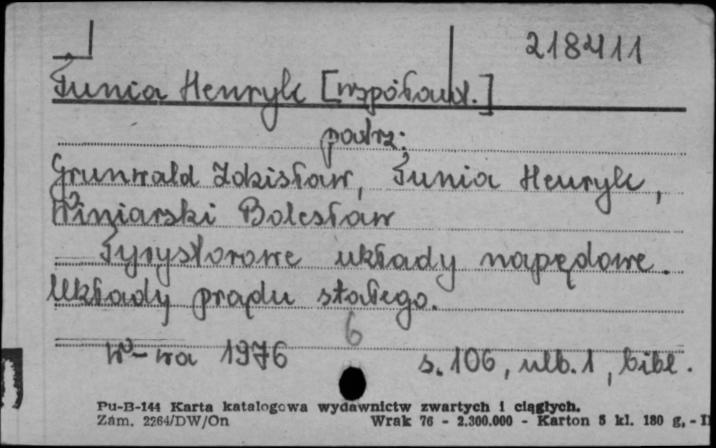 218411
Tunia Henryk [współaut.]
patrz:
Grunwald Zdzisław, Tunia Henryk,
Winiarski Bolesław
Tyrystorowe układy napędowe.
Układy prądu stałego.
6
W-wa 1976 s. 106, nlb. 1, bibl.
Pu-B-144 Karta katalogowa wydawnictw zwartych i ciągłych.
Zam. 2264/DW/On Wrak 76 - 2.300.000 - Karton 5 kl. 180 g, - D